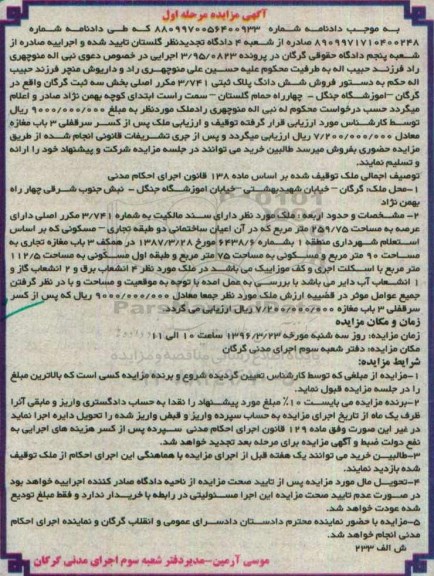 آگهی مزایده مرحله اول
به موجب دادنامه شماره ۸۸۰۹۹۷۰۰۵۶۴۰۰۹۳۳ که طی دادنامه شماره
۸۹۰۹۹۷۱۷۱۰۴۰۰۲۴۸ صادره از شعبه ۴ دادگاه تجدیدنظر گلستان تایید شده و اجراییه صادره از
شعبه پنجم دادگاه حقوقی گرگان در پرونده ۳/۹۵/۰۸۲۳ اجرایی در خصوص دعوی نبی اله منوچهری
راد فرزند حبیب اله به طرفیت محکوم علیه حسین علی منوچهری راد و داریوش منجر فرزند حبیب
اله حکم به دستور فروش شش دانگ پلاک ثبتی ۳/۷۴۱ مکرر اصلی بخش سه ثبت گرگان واقع در
گرگان –آموزشگاه جنگل - چهارراه حمام گلستان – سمت راست ابتدای کوچه بهمن نژاد صادر و اعلام
میگردد حسب درخواست محکوم له نبی اله منوچهری رادملک موردنظر به مبلغ ۹۰۰۰/۰۰۰/۰۰۰ ریال
توسط کارشناس مورد ارزیابی قرار گرفته توقیف و ارزیابی ملک پس از کسر سرقفلی ۳ باب مغازه
معادل ۷/۲۰۰/۰۰۰/۰۰۰ ریال ارزیابی میگردد و پس از جری تشریفات قانونی انجام شده از طریق
مزایده حضوری بفروش میرسد طالبین خرید می توانند در جلسه مزایده شرکت و پیشنهاد خود را ارائه
و تسلیم نمایند.
توصیف اجمالی ملک توقیف شده بر اساس ماده ۱۳۸ قانون اجرای احکام مدنی
۱-محل ملک: گرگان – خیابان شهیدبهشتی –خیابان آموزشگاه جنگل - نبش جنوب شرقی چهار راه
بهمن نژاد
۲- مشخصات و حدود اربعه ملک مورد نظر دارای سند مالکیت به شماره ۳/۷۴۱ مکرر اصلی دارای
عرصه به مساحت ۲۵۹/۷۵ متر مربع که در آن اعیان ساختمانی دو طبقه تجاری – مسکونی که بر اساس
استعلام شهرداری منطقه ۱ بشماره ۶۴۳۸/۶ مورخ ۱۳۸۷/۳/۲۸ در همکف ۳ باب مغازه تجاری به
مساحت ۹۰ متر مربع و مسکونی به مساحت ۷۵ متر مربع و طبقه اول مسکونی به مساحت ۱۱۲/۵
متر مربع با اسکلت آجری و کف موزاییک می باشد در ملک مورد نظر ۴ انشعاب برق و ۲ انشعاب گاز و
۱ انشعاب آب دایر می باشد با بررسی به عمل آمده با توجه به موقعیت و مساحت و با در نظر گرفتن
جمیع عوامل موثر در قضیه ارزش ملک مورد نظر جمعا معادل ۹۰۰۰/۰۰۰/۰۰۰ ریال که پس از کسر
سرقفلی ۳ باب مغازه ۷/۲۰۰/۰۰۰/۰۰۰ ریال ارزیابی می گردد
زمان و مکان مزایده
زمان مزایده: روز سه شنبه مورخه ۱۳۹۶/۳/۲۳ ساعت ۱۰ الی ۱۱
مکان مزایده: دفتر شعبه سوم اجرای مدنی گرگان
شرایط مزایده:
۱-مزایده از مبلغی که توسط کارشناس تعیین گردیده شروع و برنده مزایده کسی است که بالاترین مبلغ
را در جلسه مزایده قبول نماید.
۲-برنده مزایده می بایست ۱۰٪ مبلغ مورد پیشنهاد را نقدا به حساب دادگستری واریز و مابقی آنرا
ظرف یک ماه از تاریخ اجرای مزایده به حساب سپرده واریز و قبض واریز شده را تحویل دایره اجرا نماید
در غیر این صورت وفق ماده ۱۲۹ قانون اجرای احکام مدنی سپرده پس از کسر هزینه های اجرایی به
نفع دولت ضبط و آگهی مزایده برای مرحله بعد تجدید خواهد شد.
۳-طالبین خرید می توانند یک هفته قبل از اجرای مزایده با هماهنگی این اجرای احکام از ملک توقیف
شده بازدید نمایند.
۴-تحویل مال مورد مزایده پس از تایید صحت مزایده از ناحیه دادگاه صادر کننده اجراییه خواهد بود
در صورت عدم تایید صحت مزایده این اجرا مسئولیتی در رابطه با خریدار ندارد و فقط مبلغ تودیع
شده عودت خواهد شد.
۵-مزایده با حضور نماینده محترم دادستان دادسرای عمومی و انقلاب گرگان و نماینده اجرای احکام
مدنی انجام خواهد شد.
ش الف ۲۳۳
موسی آرمین-مدیردفتر شعبه سوم اجرای مدنی گرگان